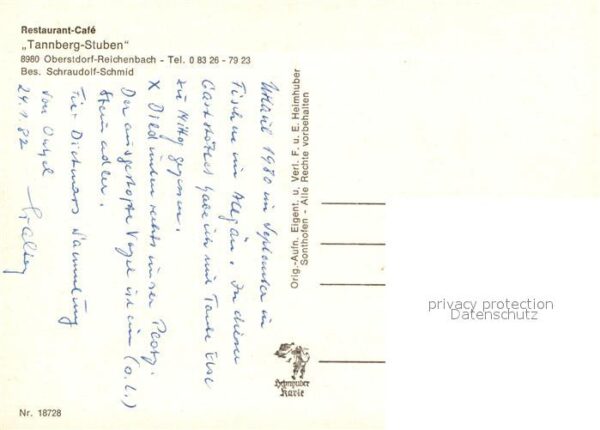 Restaurant-Café
„Tannberg-Stuben"
8980 Oberstdorf-Reichenbach - Tel. 0 83 26 - 79 23
Bes. Schraudolf-Schmid
Urlaub 1980 im September in
Fischen im Allgäu. In dieser
Gaststätte habe ich mit Tante Else
zu Mittag gegessen.
X Bild unten rechts unser Platz.
Der ausgestopfte Vogel ist ein (o.l.)
Steinadler.
Für Dietmars Sammlung
von Onkel
24.1.82
Orig.-Aufn. Eigent. u. Verl. F. u. E. Heimhuber
Sonthofen - Alle Rechte vorbehalten
Heimhuber
Karte
privacy protection
Datenschutz
Nr. 18728